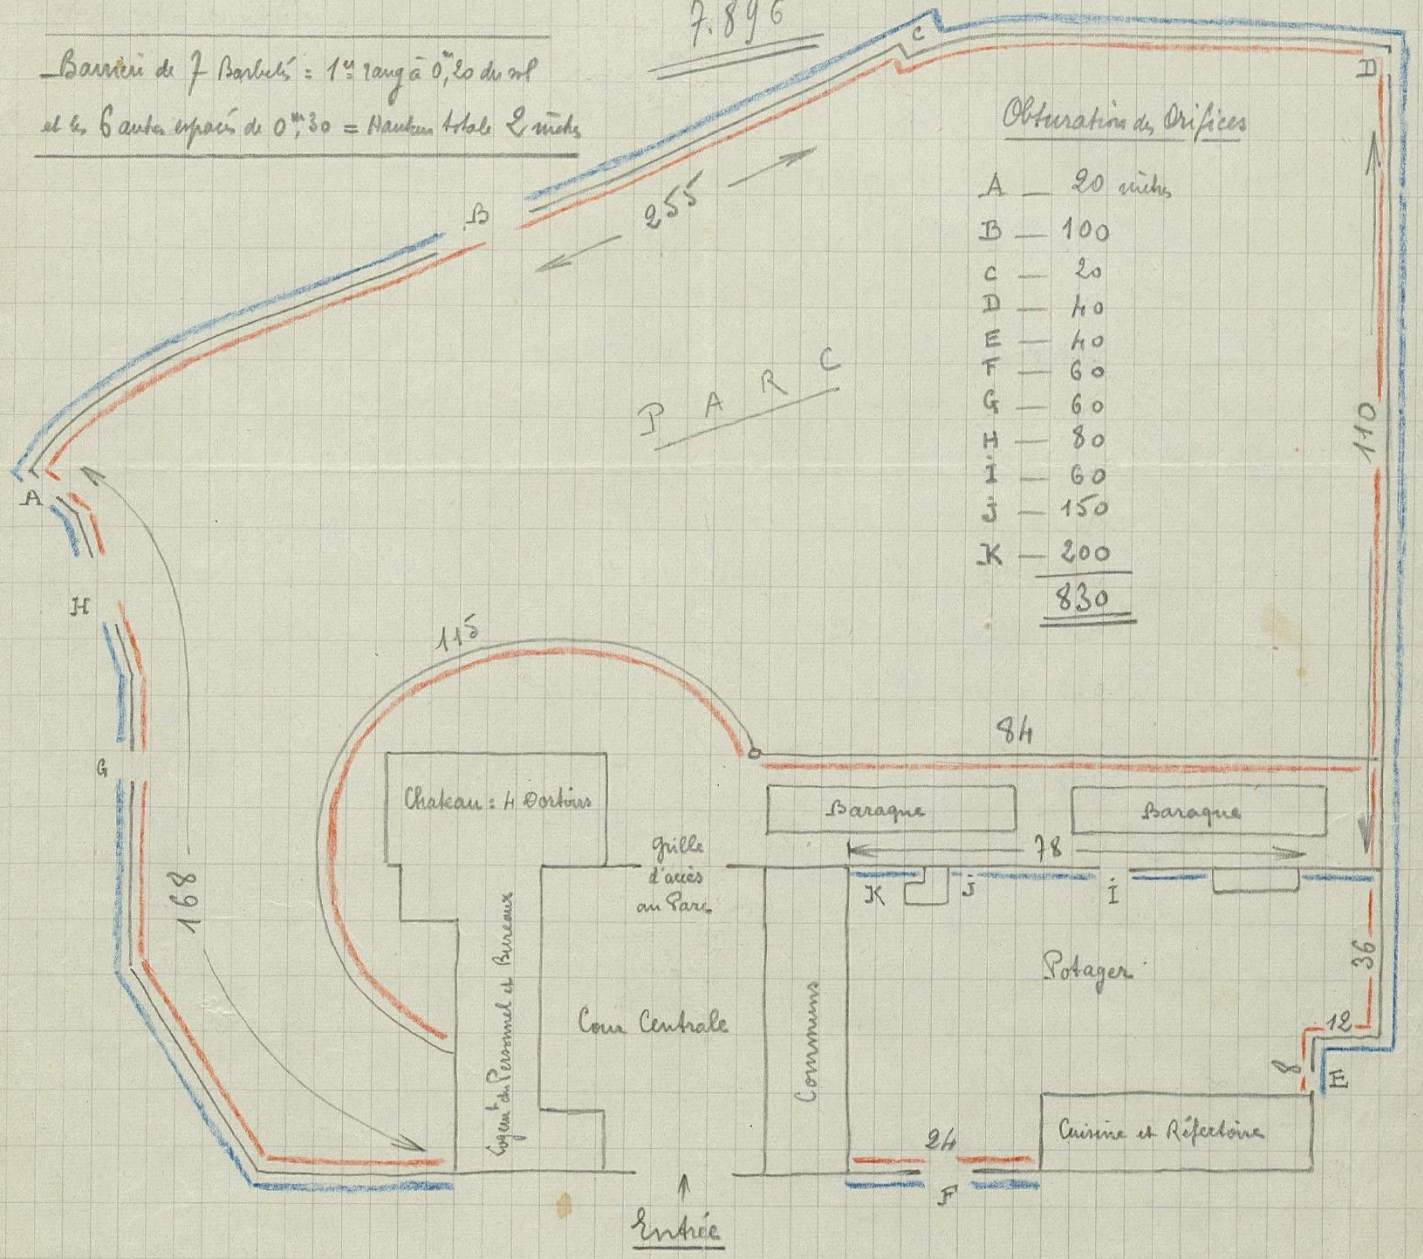 7.896
Barrière de 7 Barbelés : 1er rang à 0m,20 du sol
et les 6 autres espacés de 0m,30 = Hauteur totale 2 mètres
C
D
B
255
Obturation des Orifices
A — 20 mètres
B — 100
C — 20
D — 40
E — 40
F — 60
G — 60
H — 80
I — 60
J — 150
K — 200
830
PARC
110
A
H
115
G
84
Chateau : 4 Dortoirs
Baraque
Baraque
Grille
d'accès
au Parc
78
K
J
I
168
Logemt du Personnel et Bureaux
Cour Centrale
Communs
Potager
36
12
8
E
24
Cuisine et Réfectoire
F
Entrée